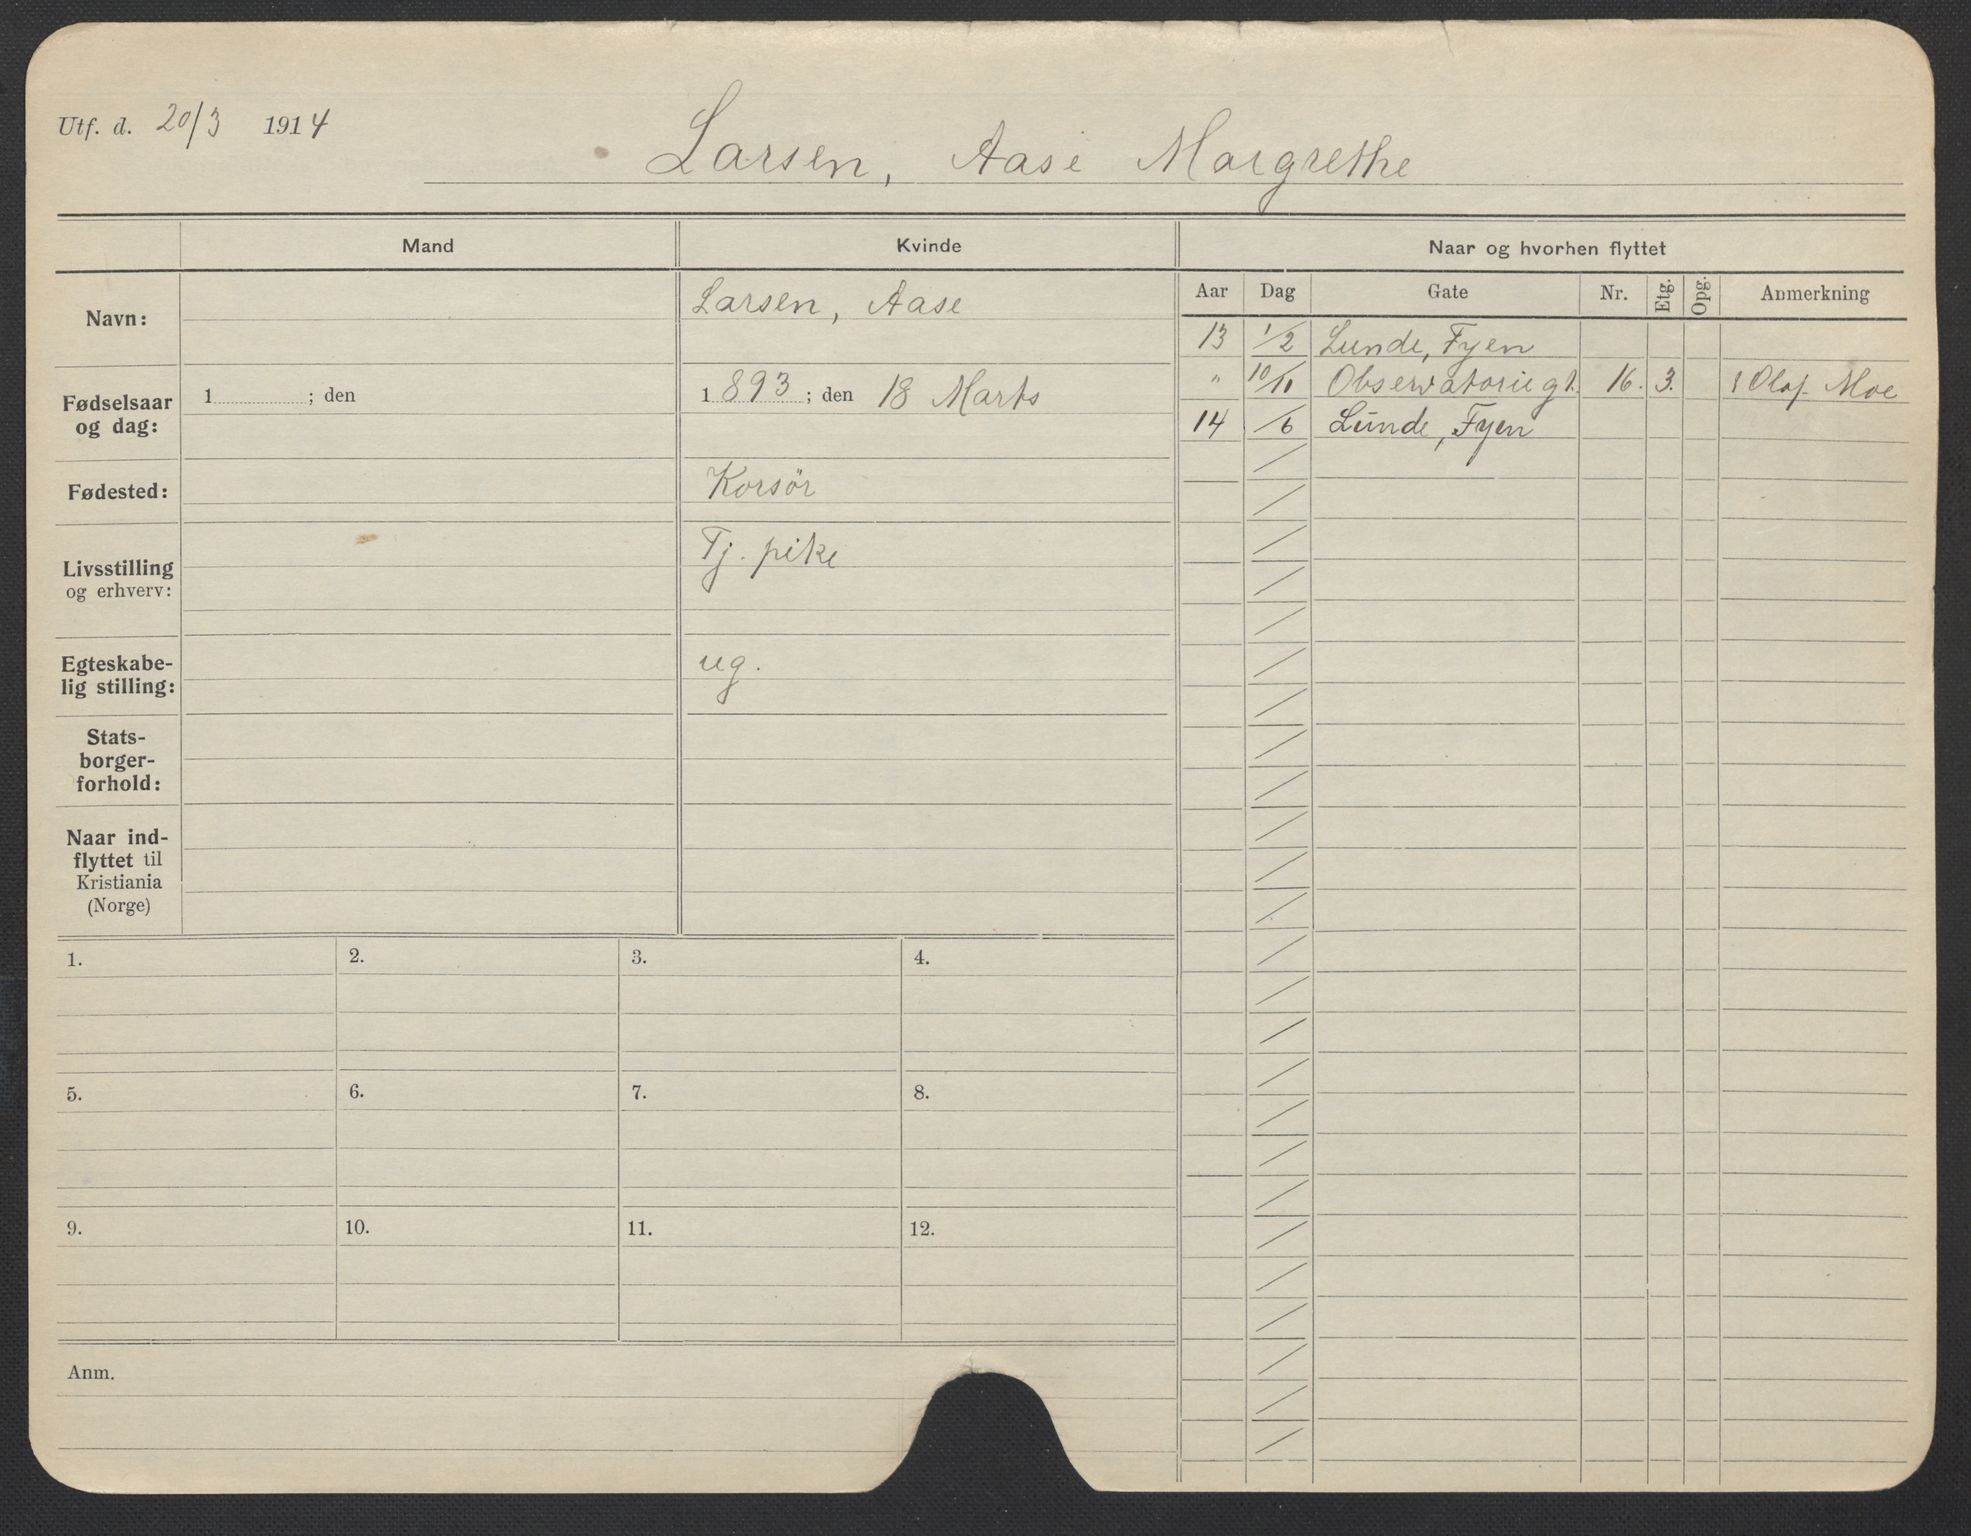 Utf. d. 20/3 1914
Larsen, Aase Margrethe
Mand
Kvinde
Naar og hvorhen flyttet
Navn:
Larsen, Aase
Fødselsaar
og dag:
1 ; den
1893; den 18 Marts
Fødested:
Korsör
Livsstilling
og erhverv:
Tj. pike
Egteskabe-
lig stilling:
ug.
Stats-
borger-
forhold:
Naar ind-
flyttet til
Kristiania
(Norge)
Aar Dag Gate Nr. Etg. Opg. Anmerkning
13 1/2 Lunde, Fyen
" 10/11 Observatoriegt. 16. 3. Olaf Moe
14 /6 Lunde, Fyen
1. 2. 3. 4.
5. 6. 7. 8.
9. 10. 11. 12.
Anm.